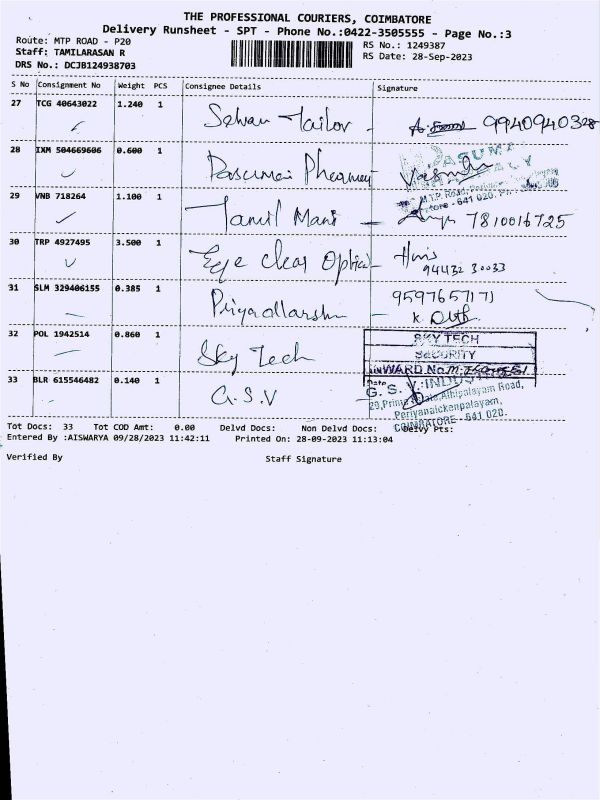 THE PROFESSIONAL COURIERS, COIMBATORE
Delivery Runsheet - SPT - Phone No.:0422-3505555 - Page No.:3
Route: MTP ROAD - P20
RS No.: 1249387
Staff: TAMILARASAN R
RS Date: 28-Sep-2023
DRS No.: DCJB124938703
S No Consignment No Weight PCS Consignee Details Signature
27 TCG 40643022 1.240 1 Selvan Tailor 9940940328
28 IXM 504669606 0.600 1 Pasumai Pharmacy
M.T.P. Road
641 020
29 VNB 718264 1.100 1 Tamil Mani 7810016725
30 TRP 4927495 3.500 1 Eye Clear Optical
94432 30033
31 SLM 329406155 0.385 1 Priyadharshni 9597657171
K.
32 POL 1942514 0.860 1 Sky Tech
SKY TECH
SECURITY
INWARD No.
Date
33 BLR 615546482 0.140 1 G.S.V
G. S. V.
Athipalayam Road,
Periyanaickenpalayam,
COIMBATORE - 641 020.
Tot Docs: 33 Tot COD Amt: 0.00 Delvd Docs: Non Delvd Docs: Delvy Pts:
Entered By :AISWARYA 09/28/2023 11:42:11 Printed On: 28-09-2023 11:13:04
Verified By Staff Signature